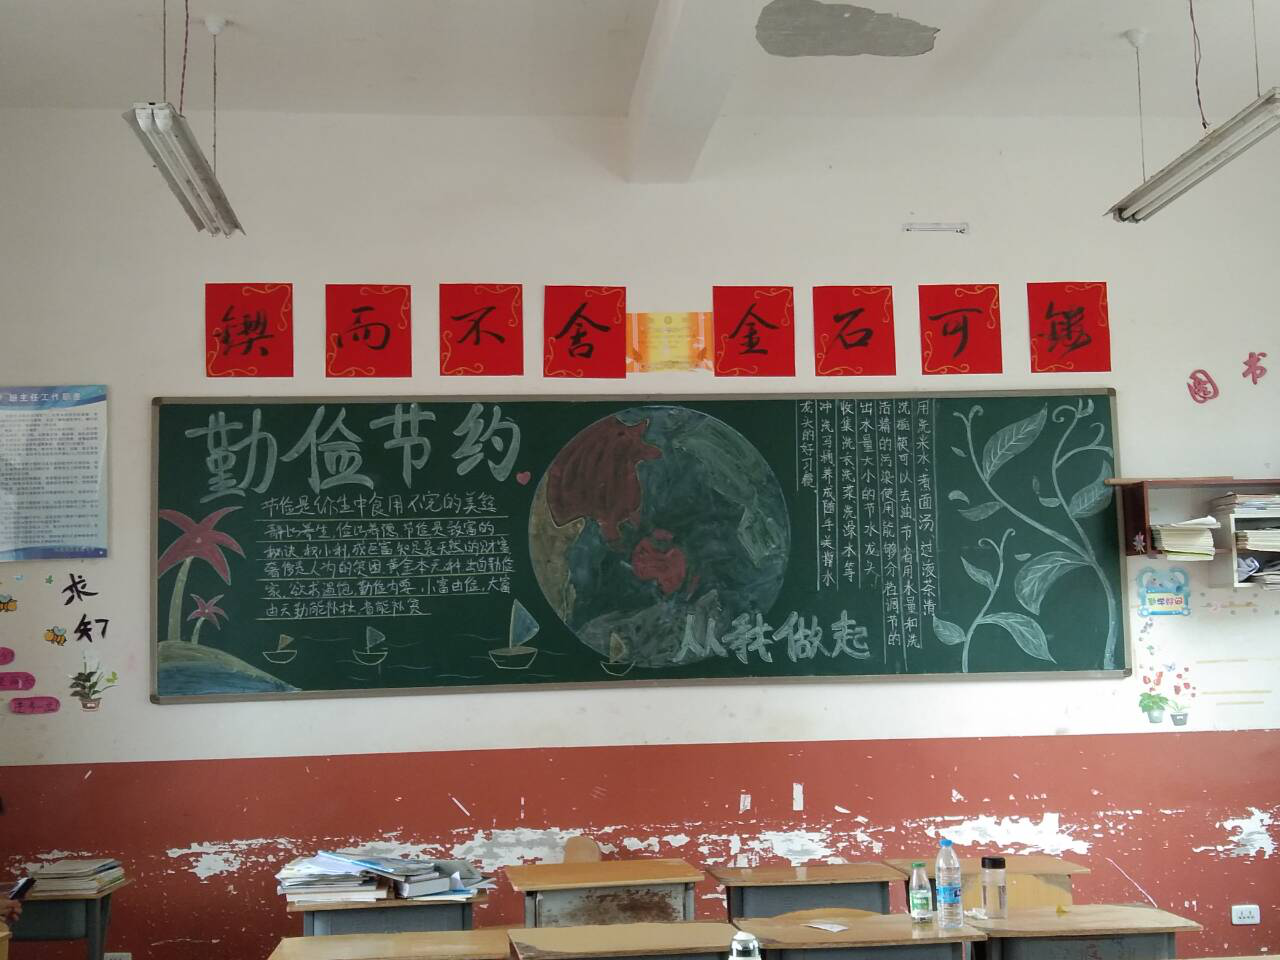 锲而不舍金石可镂
图书
班主任工作职责
勤俭节约
节俭是你一生中食用不完的美筵
耕也养生,俭以养德,节俭是致富的
秘诀,积小利成巨富,知足是天然的财富
奢侈是人为的贫困,黄金本无种出自勤俭
家,欲求温饱,勤俭为要,小富由俭,大富
由天,勤能补拙,省能补贫
用洗米水、煮面汤、过夜茶清
洗碗筷可以去油节省用水量和洗
洁精的污染使用能够分档调节的
出水量大小的节水龙头
收集洗衣洗菜洗澡水等
冲洗马桶养成随手关掉水
龙头的好习惯
从我做起
求知
勤学好问